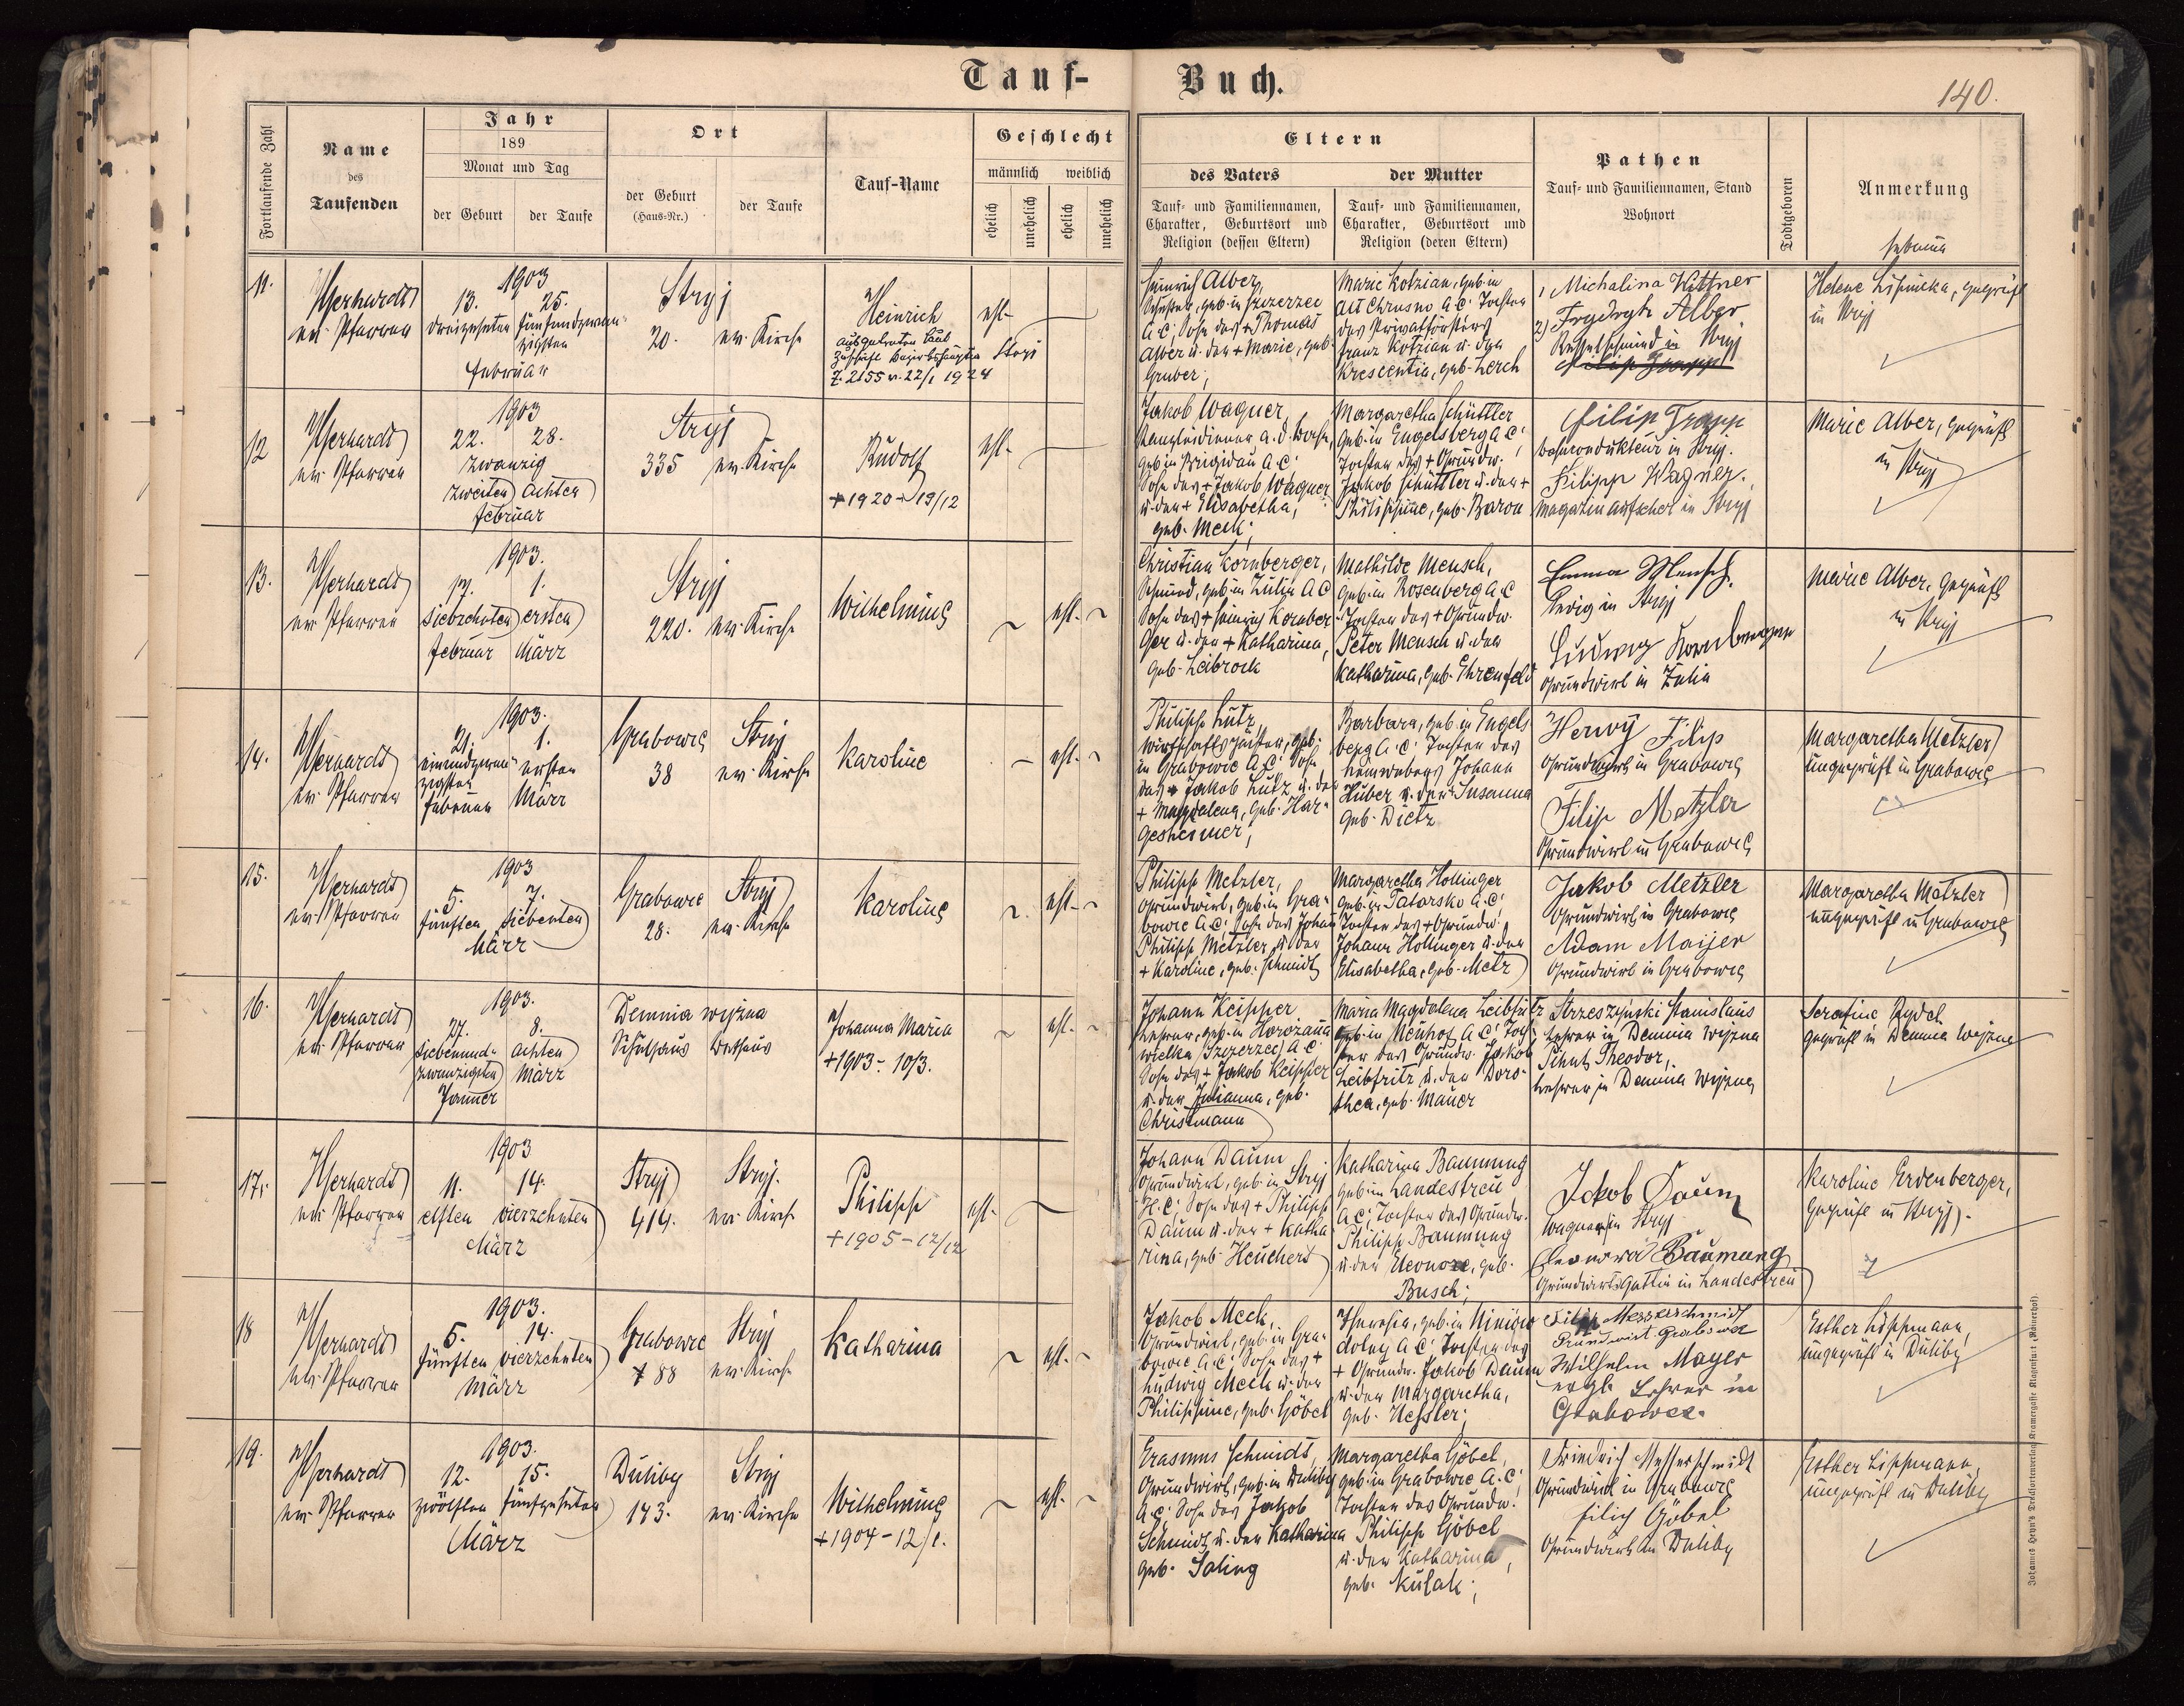 Tauf-
Buch.
140.
Fortlaufende Zahl
Name
des
Taufenden
Jahr
189
Monat und Tag
der Geburt
der Taufe
Ort
der Geburt
(Haus-Nr.)
der Taufe
Tauf-Name
Geschlecht
männlich
weiblich
ehelich
unehelich
ehelich
unehelich
Eltern
des Vaters
der Mutter
Tauf- und Familiennamen,
Charakter, Geburtsort und
Religion (dessen Eltern)
Tauf- und Familiennamen,
Charakter, Geburtsort und
Religion (deren Eltern)
Pathen
Tauf- und Familiennamen, Stand
Wohnort
Todtgeboren
Anmerkung
Hebamme
11.
ev. Pfarrer
1903
13. 25.
dreizehnten fünfundzwan-
zigsten
Februar
Stryj
20. ev. Kirche
Heinrich
ausgetreten laut
Zuschrift Bezirkshauptm. Stryj
Z. 2155 v. 22/1 1924
ehl.
Heinrich Alber,
geb. in Szczerzec
A.C; Sohn des + Thomas
Alber u. der + Marie, geb.
Gruber;
Marie Kotzian, geb. in
Alt Chrusno A.C; Tochter
des Privatförsters
Franz Kotzian u. der
Krescentia, geb. Lerch
1) Michalina Kittner
2) Frydryk Alber
Kesselschmied in Stryj
Filip Trapp
Helene Lisinicka, geprüft
in Stryj
12
ev. Pfarrer
1903
22. 28.
zwanzig
zweiten achten
Februar
Stryj
335 ev. Kirche
Rudolf
+ 1920 - 19/12
ehl.
Jakob Wagner,
Kanzleidiener a. d. Bahn,
geb. in Brigidau A.C;
Sohn des + Jakob Wagner
u. der + Elisabetha,
geb. Meck;
Margaretha Schüttler
geb. in Engelsberg A.C;
Tochter des + Grundw.
Jakob Schüttler u. der +
Philippine, geb. Baron
Filip Trapp
Bahnkondukteur in Stryj.
Filipp Wagner.
Magazinaufseher in Stryj
Marie Alber, geprüft
in Stryj
13.
ev. Pfarrer
1903.
17. 1.
siebzehnten ersten
Februar März
Stryj
220. ev. Kirche
Wilhelmine
ehl.
Christian Kornberger,
Schmied, geb. in Zulin A C
Sohn des + Heinrich Kornber-
ger u. der + Katharina,
geb. Leibrock
Mathilde Mensch,
geb. in Rosenberg A.C
Tochter des + Grundw.
Peter Mensch u. der
Katharina, geb. Ehrenfeld
Emma Mensch.
ledig in Stryj
Ludwig Kornberger
Grundwirt in Zulin
Marie Alber, geprüft
in Stryj
14.
ev. Pfarrer
1903.
21. 1.
einundzwan- ersten
zigsten
Februar März
Grabowce Stryj
38 ev. Kirche
Karoline
ehl.
Philipp Lutz,
geb.
in Grabowce A.C; Sohn
des + Jakob Lutz u. der
+ Magdalena, geb. Har-
gesheimer;
Barbara, geb. in Engels
berg A.C; Tochter des
Johann
Huber u. der Susanna
geb. Dietz
Hervy Filip
Grundwirt in Grabowce
Filip Metzler
Grundwirt in Grabowce
Margaretha Metzler
ungeprüft in Grabowce
15.
ev. Pfarrer
1903
5. 7.
fünften siebenten
März
Grabowce Stryj
28. ev. Kirche
Karoline
ehl.
Philipp Metzler,
Grundwirt, geb. in Gra-
bowce A.C; Sohn des Johann
Philipp Metzler, u. der
+ Karoline, geb. Schmidt
Margaretha Hollinger
geb. in Tatarsko A.C;
Tochter des + Grundw.
Johann Hollinger u. der
Elisabetha, geb. Metz
Jakob Metzler
Grundwirt in Grabowce
Adam Maijer
Grundwirt in Grabowce
Margaretha Metzler
ungeprüft in Grabowce
16.
ev. Pfarrer
1903.
27. 8.
siebenund- achten
zwanzigsten März
Jänner
Demnia wyżna
Schulhaus Bethaus
Johanna Maria
+ 1903 - 10/3.
ehl.
Johann Keipper
Lehrer, geb. in Horożana
wielka (Szczerzec) A.C
Sohn des + Jakob Keipper
u. der Julianna, geb.
Christmann
Maria Magdalena Leibfritz
geb. in Neuhof A.C; Toch-
ter des Grundw. Jakob
Leibfritz u. der Doro-
thea, geb. Mauer
Strzeszynski Stanislaus
Lehrer in Demnia wyżna
Theodor,
Lehrer in Demnia wyżna
Serafine Rydel
geprüft in Demnia wyżna
17.
ev. Pfarrer
1903
11. 14.
elften vierzehnten
März
Stryj Stryj.
414. ev. Kirche
Philipp
+ 1905 - 12/12
ehl.
Johann Daum
Grundwirt, geb. in Stryj
H.C; Sohn des + Philipp
Daum u. der + Katha
rina, geb. Heuchert
Katharina Baumung
geb. in Landestreu
A.C; Tochter des Grundw.
Philipp Baumung
u. der Eleonore, geb.
Busch;
Jakob Daum
Wagner in Stryj
Eleonora Baumung
Grundwirtsgattin in Landestreu
Karoline Erdenberger,
geprüft in Stryj.
18
ev. Pfarrer
1903.
5. 14.
fünften vierzehnten
März
Grabowce Stryj
88 ev. Kirche
Katharina
ehl.
Jakob Meck,
Grundwirt, geb. in Gra-
bowce A.C; Sohn des +
Ludwig Meck u. der
Philippine, geb. Göbel
Theresia, geb. in Ninigw
dolny A.C; Tochter des
+ Grundw. Jakob Daum
u. der Margaretha,
geb. Hessler;
Filip Messerschmidt
Grundwirt Grabowce
Wilhelm Mayer
evgl. Lehrer in
Grabowce.
Esther Lippmann,
ungeprüft in Duliby
19.
ev. Pfarrer
1903.
12. 15.
zwölften fünfzehnten
März
Duliby Stryj
143. ev. Kirche
Wilhelmine
+ 1904 - 12/1.
ehl.
Erasmus Schmidt,
Grundwirt, geb. in Duliby
A.C; Sohn des Jakob
Schmidt u. der Katharina
geb. Saling
Margaretha Göbel,
geb. in Grabowce A.C;
Tochter des Grundw.
Philipp Göbel
u. der Katharina,
geb. Kulak;
Friedrich Messerschmidt
Grundwirt in Grabowce
Filip Göbel
Grundwirt in Duliby
Esther Lippmann,
ungeprüft in Duliby